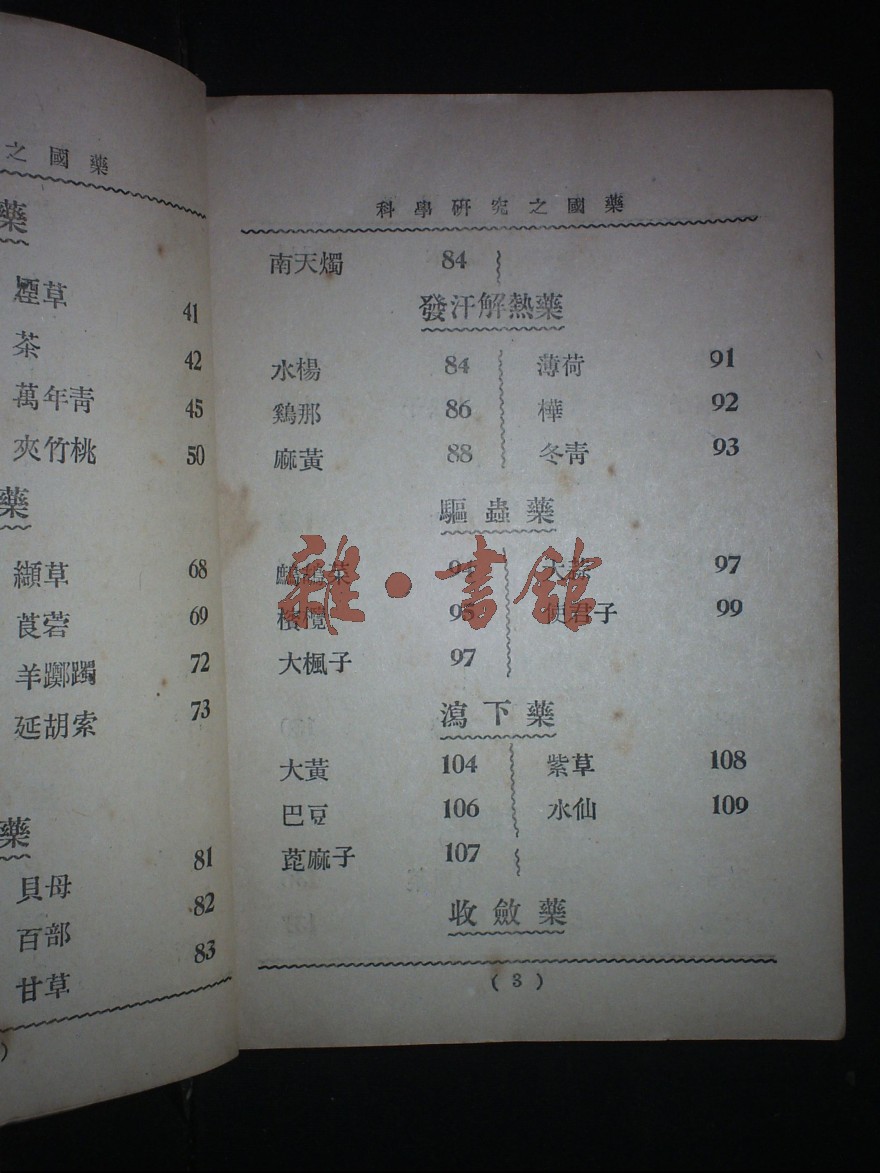 之國藥
藥
煙草 41
茶 42
萬年靑 45
夾竹桃 50
藥
纈草 68
莨菪 69
羊躑躅 72
延胡索 73
藥
貝母 81
百部 82
甘草 83
科學硏究之國藥
南天燭 84
發汗解熱藥
水楊 84 薄荷 91
鷄那 86 樺 92
麻黃 88 冬靑 93
驅蟲藥
鷓鴣菜 94 大蒜 97
檳欖 95 使君子 99
大楓子 97
瀉下藥
大黃 104 紫草 108
巴豆 106 水仙 109
蓖麻子 107
收斂藥
( 3 )
雜·書館